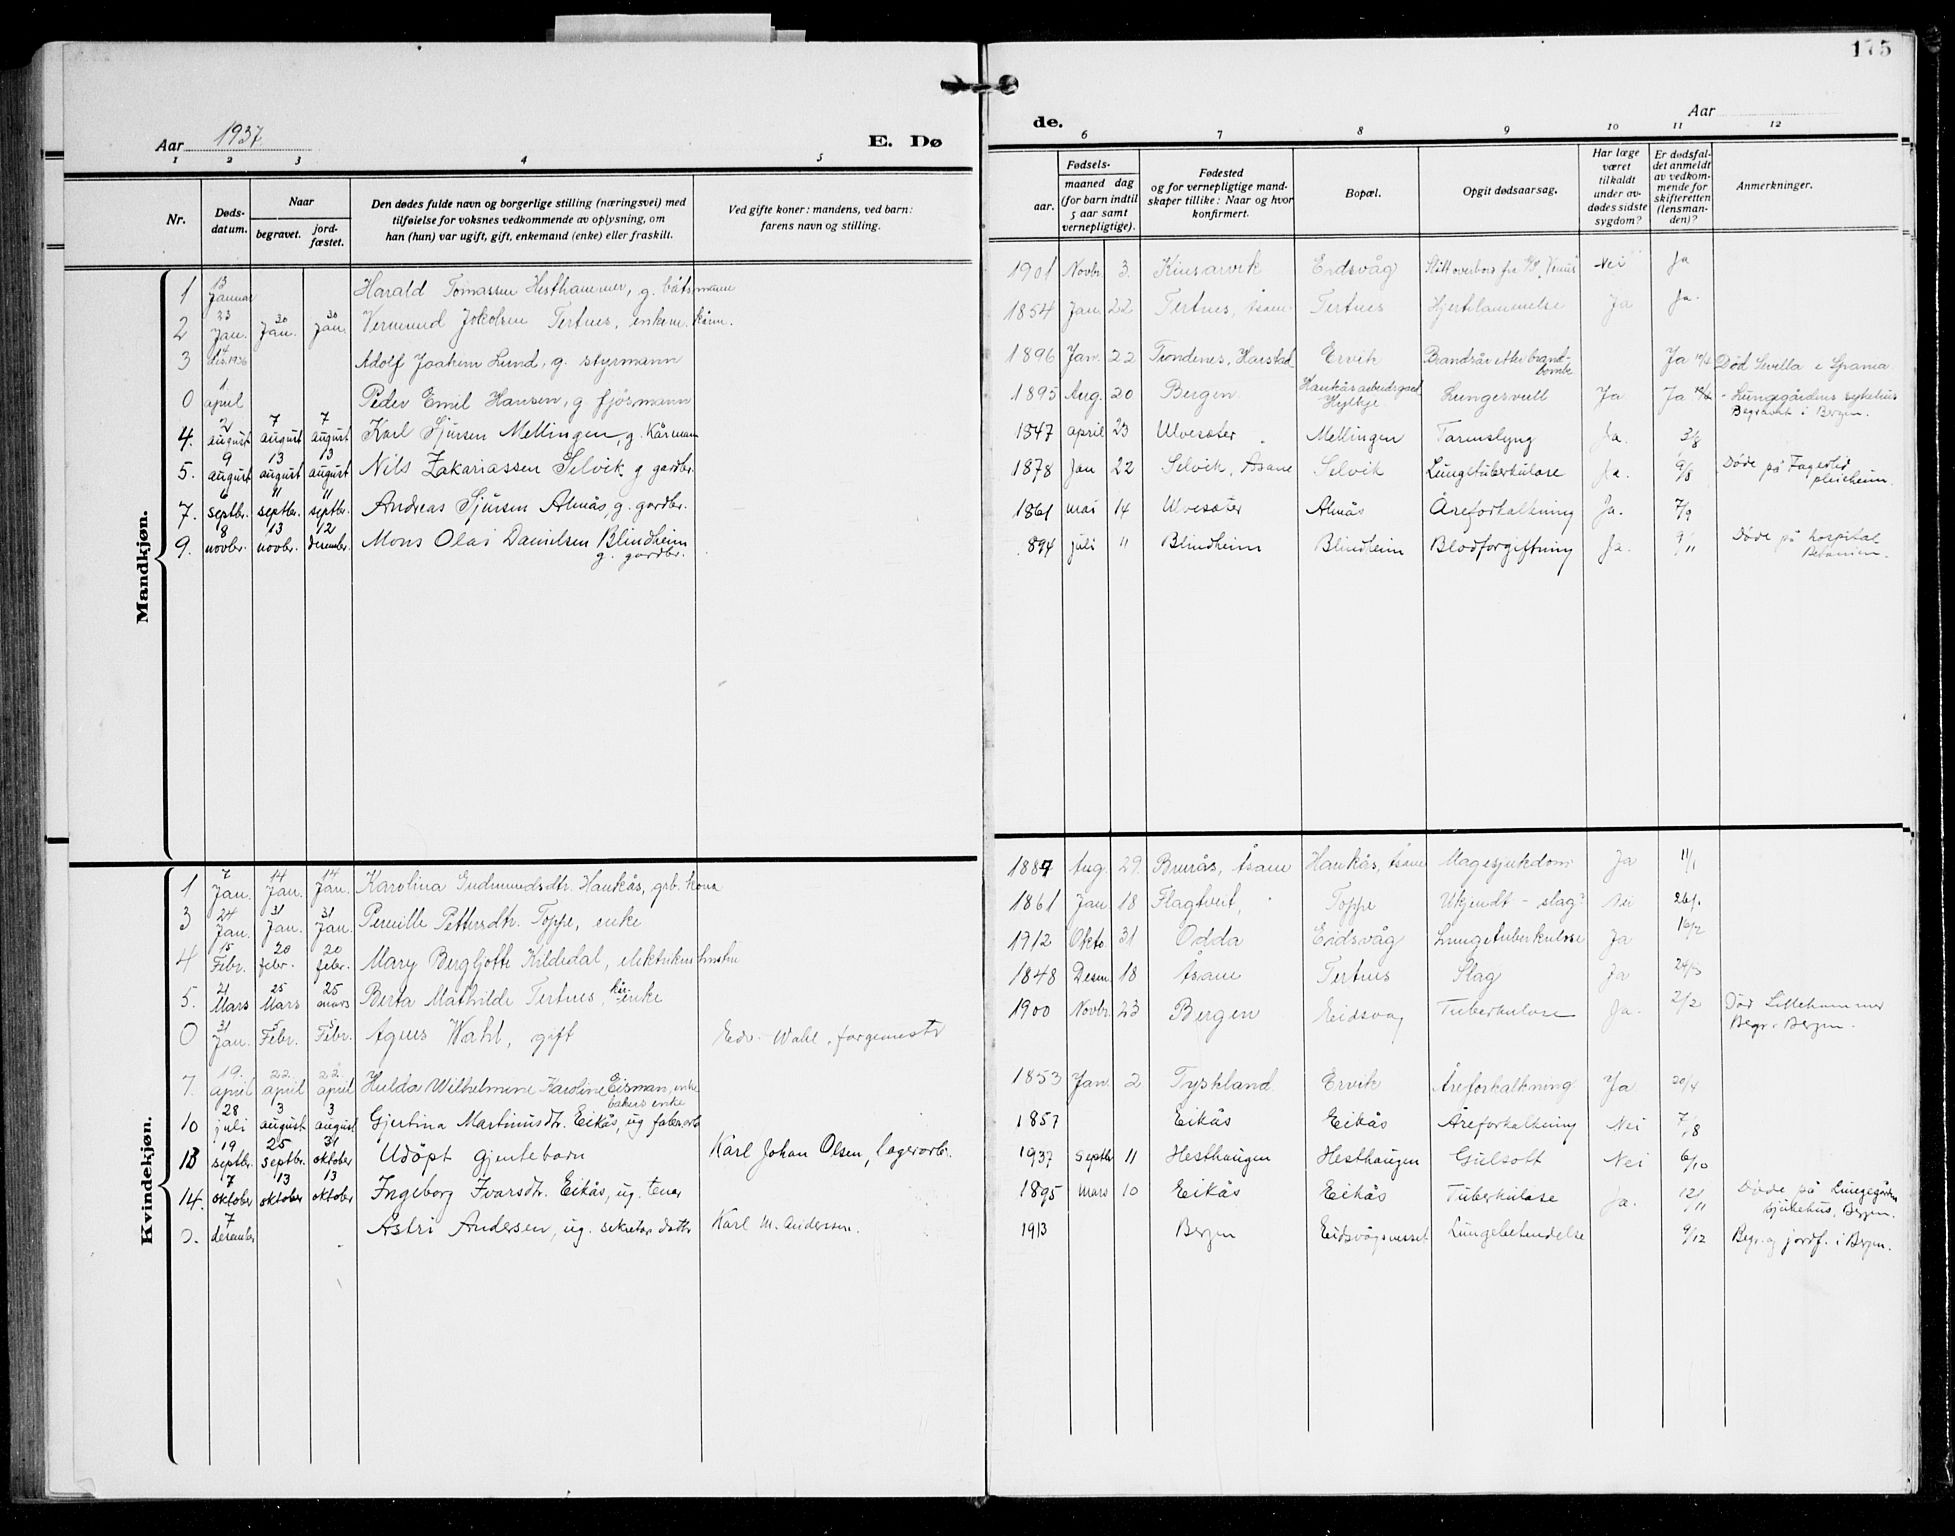 175
Aar 1937 E. Dø de. Aar
1 2 3 4 5 6 7 8 9 10 11 12
Nr.
Døds-
datum.
Naar
begravet.
jord-
fæstet.
Den dødes fulde navn og borgerlige stilling (næringsvei) med
tilføielse for voksnes vedkommende av oplysning, om
han (hun) var ugift, gift, enkemand (enke) eller fraskilt.
Ved gifte koner: mandens, ved barn:
farens navn og stilling.
Fødsels-
aar.
maaned dag
(for barn indtil
5 aar samt
vernepligtige).
Fødested
og for vernepligtige mand-
skaper tillike: Naar og hvor
konfirmert.
Bopæl.
Opgit dødsaarsag.
Har læge
været
tilkaldt
under av-
dødes sidste
sygdom?
Er dødsfal-
det anmeldt
av vedkom-
mende for
skifteretten
(lensman-
den)?
Anmerkninger.
Mandkjøn.
1 13 Januar Harald Tomassen Hesthammer, g. båtsmann 1901 Novbr 3. Kinsarvik Eidsvåg Skitt overbord fra "Venus" Nei Ja
2 23 Jan. 30 Jan. 30 Jan. Vermund Jokolsen Tertnes, enkem. kårm. 1854 Jan. 22 Tertnes, Åsane Tertnes Hjertelammelse Ja Ja.
3 4 1936 Adolf Joakim Lund, g. styrmann 1896 Jan. 22 Trondenes, Harstad Ervik Brandsår etter brand-
bombe Ja Død Sevilla i Spania
0 1 april Peder Emil Hansen, g fjøsmann 1895 Aug. 20 Bergen Haukås arbeidsgard
Hylkje Lungesvull Ja Ja - Lungegårdens sykehus
Begravet i Bergen.
4. 2 august 7 august 7 august Karl Sjursen Mellingen, g. kårmann 1847 april 23 Ulvesæter Mellingen Tarmslyng Ja. 3/8
5. 9 august 13 august 13 august Nils Zakariassen Selvik g gardbr. 1878 Jan 22 Selvik, Åsane Selvik Lungetuberkulose Ja. 9/8 Døde på Fagerlid
pleieheim.
7. 6 septbr. 11 septbr. 11 septbr. Andreas Sjursen Almås, g. gardbr. 1861 mai 14 Ulvesæter Almås Åreforkalkning Ja. 7/9
9. 8 novbr. 13 novbr. 12 desember. Mons Olai Danielsen Blindheim
g. gardbr. 894 juli 11 Blindheim Blindheim Blodforgiftning Ja. 9/11 Døde på hospital
Betanien.
Kvindekjøn.
1 7 Jan. 14 Jan. 14 Jan. Karolina Gudmundsdtr. Haukås, grb. kona 1887 Aug. 29. Brurås, Åsane Haukås, Åsane Magesjukdom Ja 11/1
3 24 Jan. 31 Jan. 31 Jan. Pernille Pettersdtr. Toppe, enke 1861 Jan 18 Flagtveit, Toppe Ukjendt - slag? Nei 26/1
4 15 Febr. 20 febr. 20 febr. Mary Bergljotte Kildedal, elektrikers hustru 1912 Okto 31 Odda Eidsvåg Lungetuberkulose Ja 16/2
5. 21 Mars 25 Mars 25 mars Berta Mathilde Tertnes, kår enke 1848 Desem 18 Åsane Tertnes Slag Ja 24/3
0 31 Jan. 5 Febr. 5 Febr. Agnes Wahl, gift Edv. Wahl, fargemestr 1900 Novbr. 23 Bergen Eidsvag Tuberkulose Ja. 2/2 Død Lillehammer
Begr. Bergen.
7. 19. april 22 april 22. april Hulda Wilhelmine Karoline Eisman, enke
bakers enke 1853 Jan. 2 Tyskland Ervik Åreforkalkning Ja 20/4
10 28 juli 3 august 3 august Gjertina Martinusdtr. Eikås, ug fabr.arb 1857 Eikås Eikås Åreforkalkning Nei 7/8
13 19 septbr. 25 septbr. 31 oktober Udöpt gjentebarn Karl Johan Olsen, lagerarb. 1937 septbr 11 Hesthaugen Hesthaugen Gulsott Nei 6/10
14. 7 oktober 13 oktober 13 oktober Ingeborg Ivarsdtr. Eikås, ug. tener 1895 mars 10 Eikås Eikås Tuberkulose Ja. 12/11 Døde på Lungegården
sjukehus, Bergen.
0. 7 desember Astri Andersen, ug. sekretær datter Karl M. Anderssen. 1913 Bergen Eidsvågsnesset Lungebetendelse 9/12 Begr. og jordf. i Bergen.